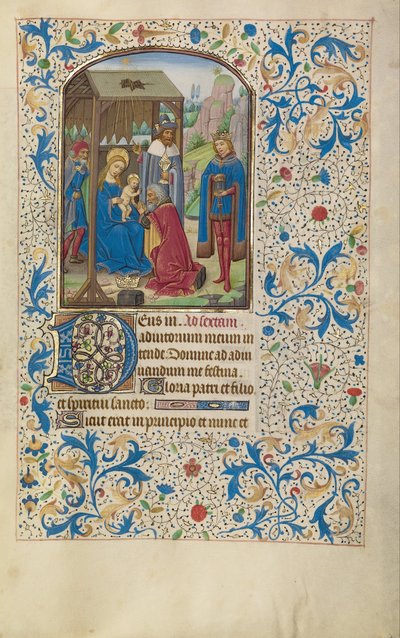 Deus in. Ad sextam
adiutorium meum in
tende. Domine ad adiu
uandum me festina.
Gloria patri et filio
et spiritui sancto.
Sicut erat in principio et nunc et